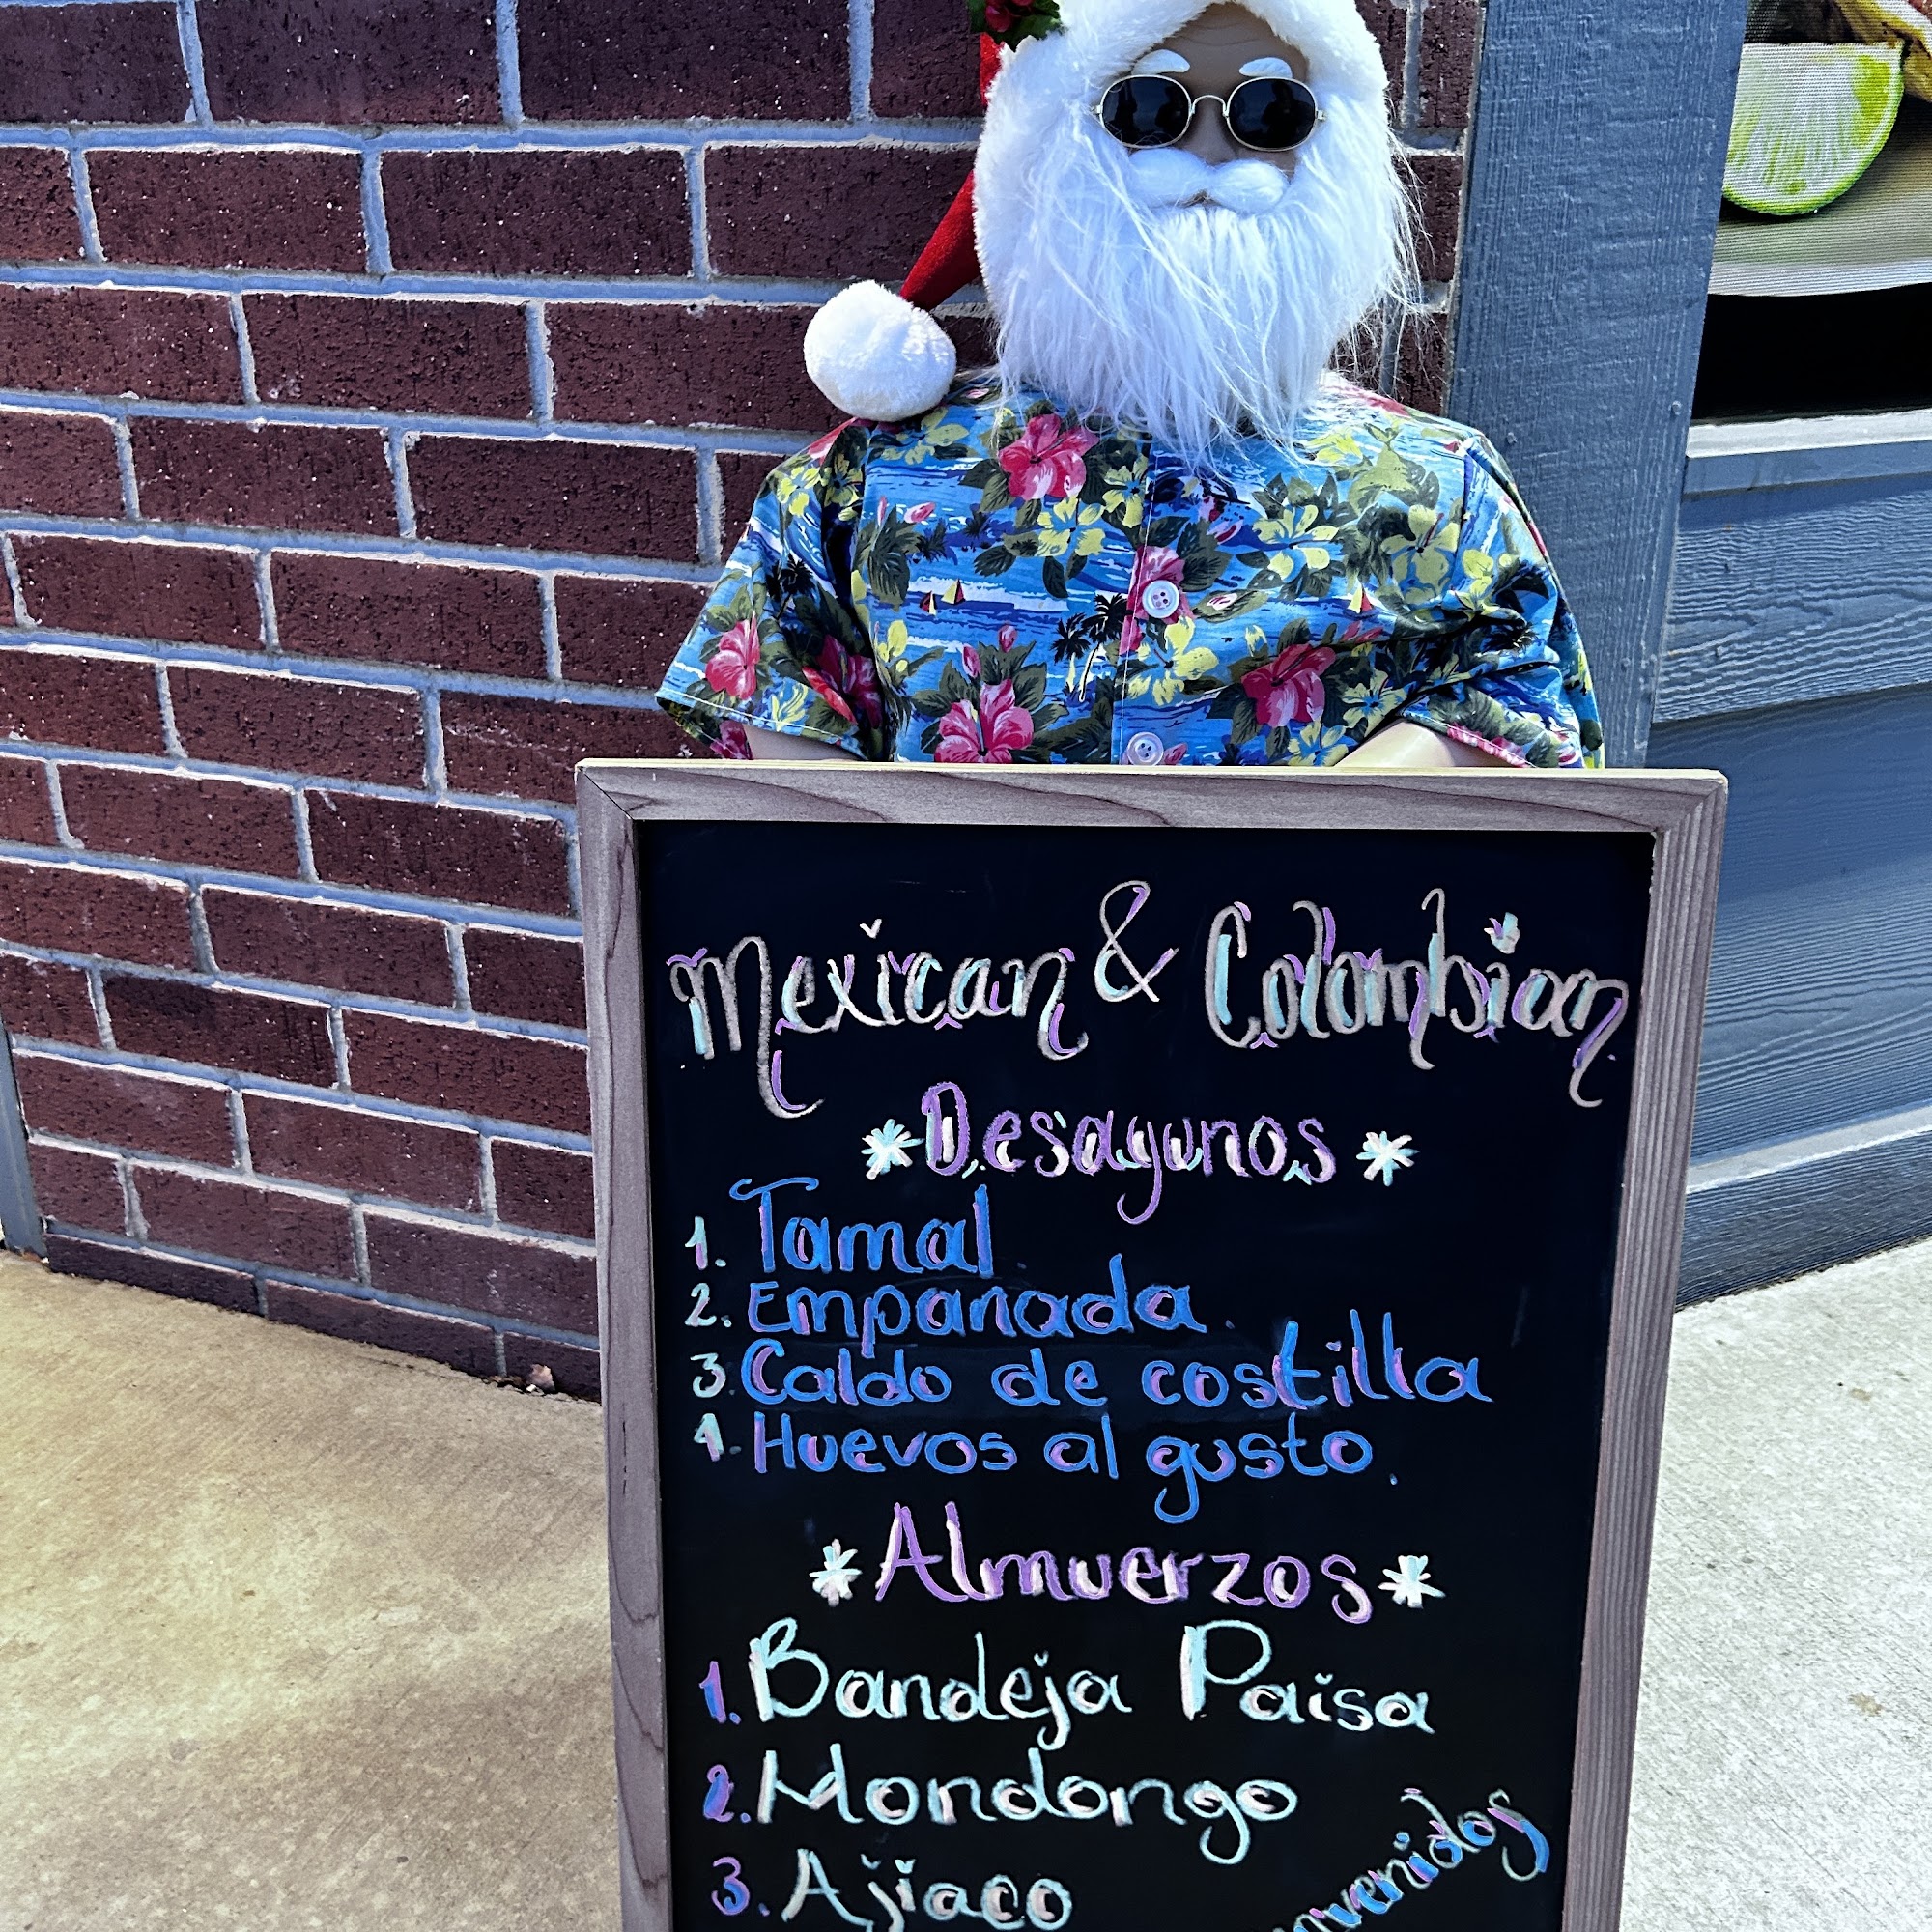 Mexican & Colombian
*Desayunos*
1. Tamal
2. Empanada.
3. Caldo de costilla
4. Huevos al gusto.
*Almuerzos*
1. Bandeja Paisa
2. Mondongo
3. Ajiaco